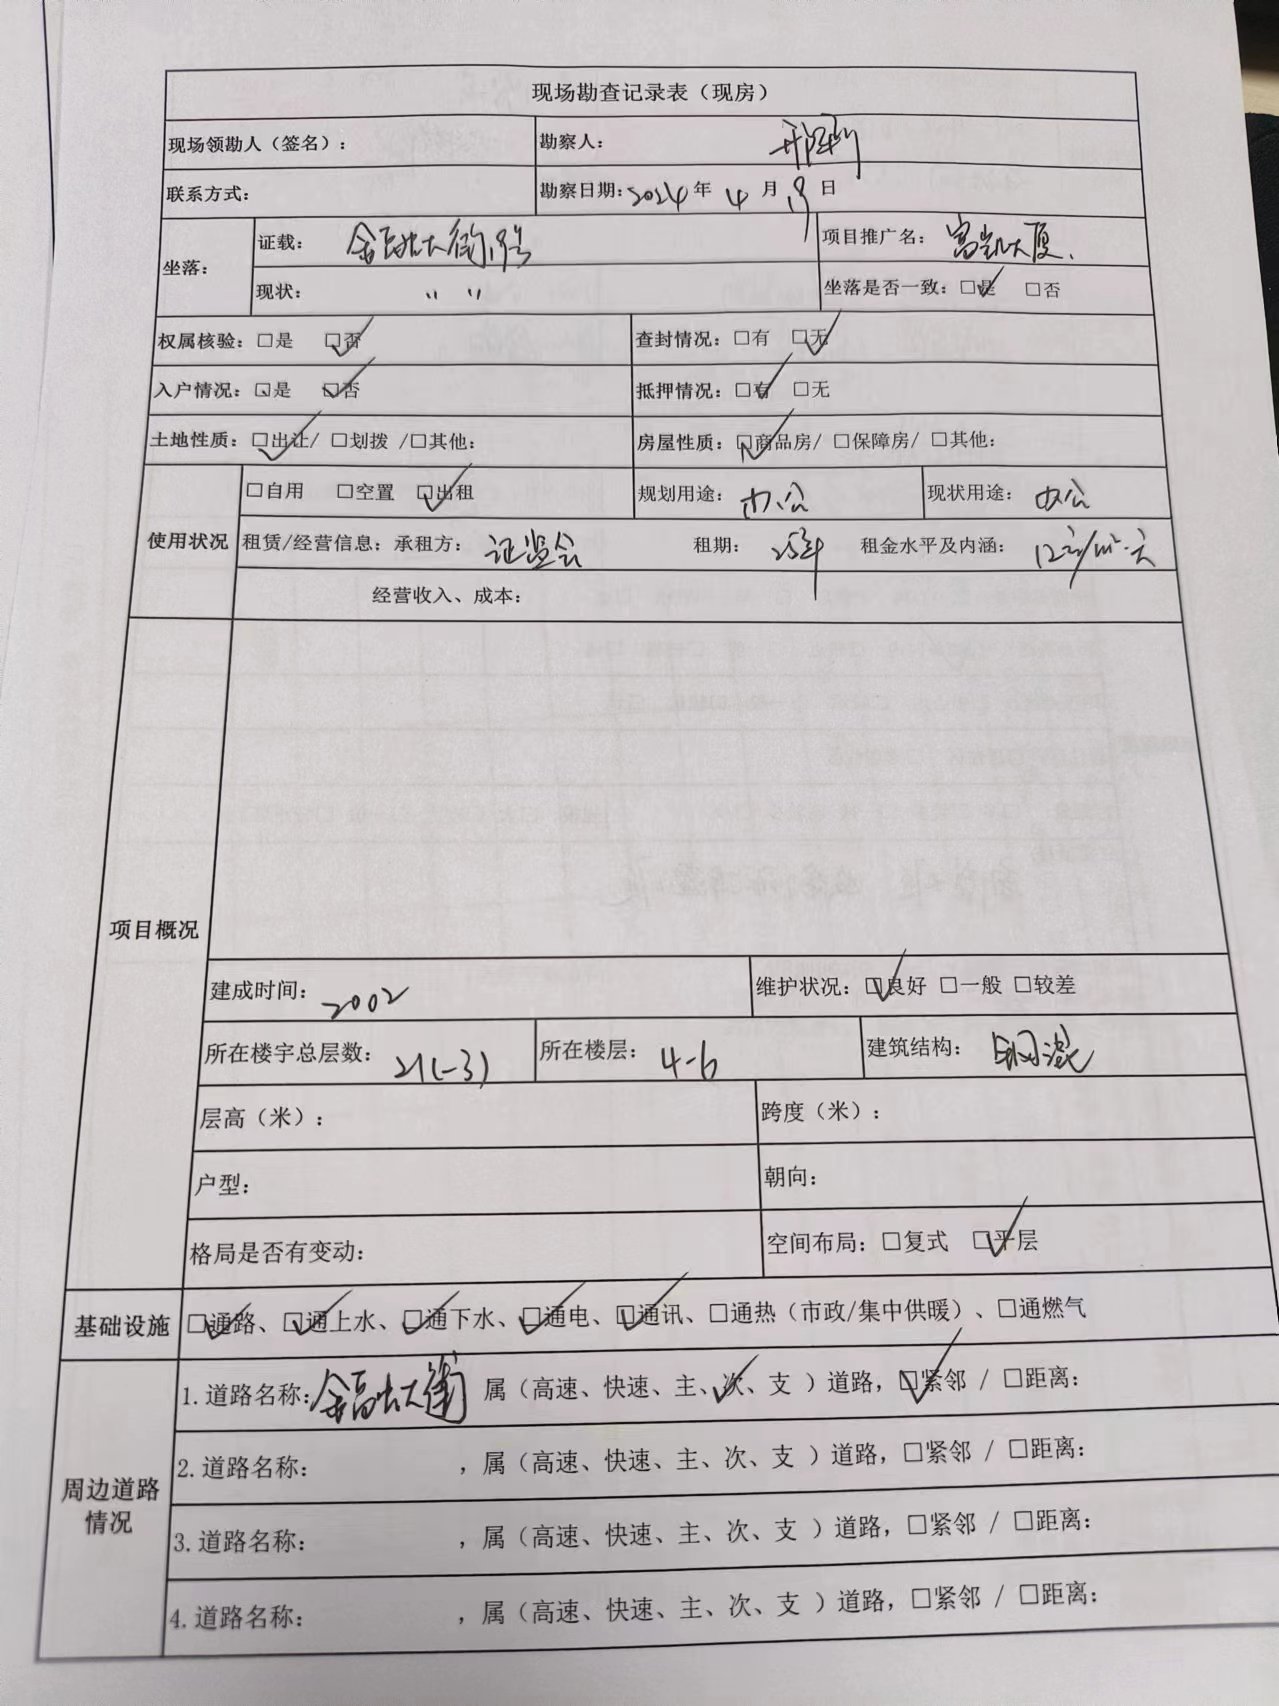 现场勘查记录表（现房）
现场领勘人（签名）： 勘察人：
联系方式： 勘察日期：2024年4月19日
坐落： 证载： 金融大街19号 项目推广名： 富凯大厦
现状： 〃 〃 坐落是否一致：☑是 □否
权属核验：□是 ☑否 查封情况：□有 ☑无
入户情况：□是 ☑否 抵押情况：☑有 □无
土地性质：☑出让/ □划拨 /□其他： 房屋性质：☑商品房/ □保障房/ □其他：
使用状况 □自用 □空置 ☑出租 规划用途：办公 现状用途：办公
租赁/经营信息：承租方： 证监会 租期： 25年 租金水平及内涵： 12元/m²·天
经营收入、成本：
项目概况
建成时间：2002 维护状况：☑良好 □一般 □较差
所在楼宇总层数：21(-3) 所在楼层：4-6 建筑结构：钢混
层高（米）： 跨度（米）：
户型： 朝向：
格局是否有变动： 空间布局：□复式 ☑平层
基础设施 ☑通路、☑通上水、☑通下水、☑通电、☑通讯、□通热（市政/集中供暖）、□通燃气
周边道路情况 1.道路名称：金融大街 属（高速、快速、主、次✓、支 ）道路，☑紧邻 / □距离：
2.道路名称： ，属（高速、快速、主、次、支 ）道路，□紧邻 / □距离：
3.道路名称： ，属（高速、快速、主、次、支 ）道路，□紧邻 / □距离：
4.道路名称： ，属（高速、快速、主、次、支 ）道路，□紧邻 / □距离：